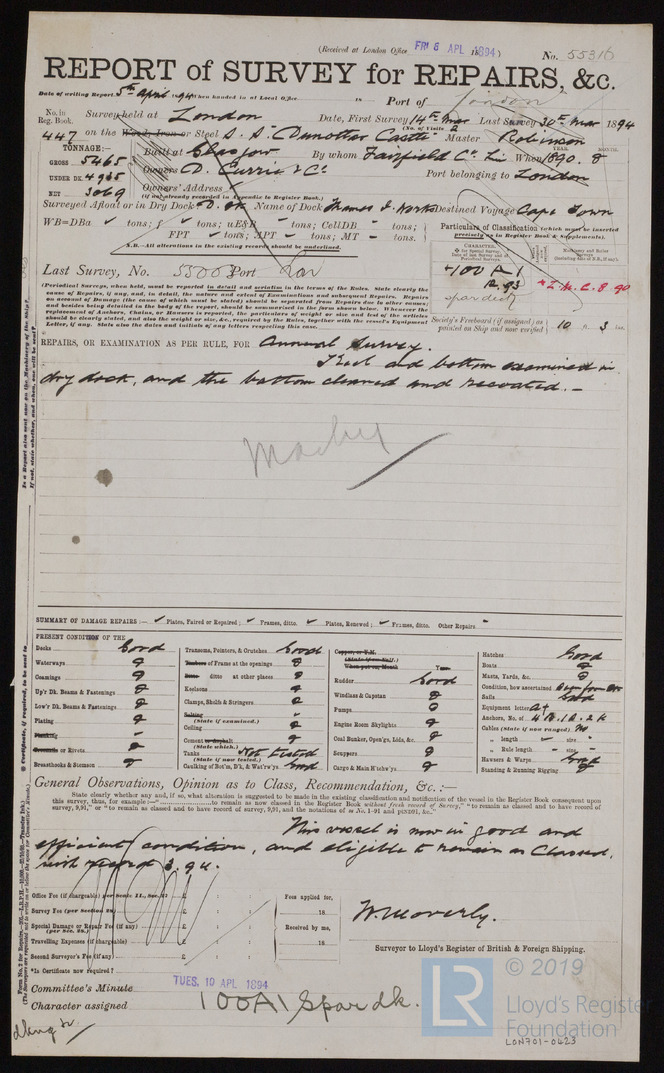 (Received at London Office FRI 6 APL 1894)
No. 55316
REPORT of SURVEY for REPAIRS, &c.
Date of writing Report 5th April 94 When handed in at Local Office 18 Port of London
No. in Reg. Book. Survey held at London Date, First Survey 14th Mar Last Survey 30th Mar 1894
(No. of Visits 2
447 on the Wood, Iron or Steel S. S. Dunottar Castle Master Robinson
TONNAGE:—
GROSS 5465
UNDER DK. 4935
NET 3069
YEAR. MONTH.
Built at Glasgow By whom Fairfield Co. Li When 1890. 8
Owners D. Currie & Co Port belonging to London
Owners' Address
(if not already recorded in Appendix to Register Book.)
Surveyed Afloat or in Dry Dock D. Dk Name of Dock Thames I. Works Destined Voyage Cape Town
WB=DBa tons; f tons; uE&B tons; CellDB tons;
FPT tons; APT tons; MT tons.
N.B.—All alterations in the existing records should be underlined.
Particulars of Classification (which must be inserted precisely as in Register Book & Supplements).
Last Survey, No. 55003 Port Lon
+100 A 1
12.93
spar deck
+L.M.C. 8.90
(Periodical Surveys, when held, must be reported in detail and seriatim in the terms of the Rules. State clearly the cause of Repairs, if any, and, in detail, the nature and extent of Examinations and subsequent Repairs. Repairs on account of Damage (the cause of which must be stated) should be separated from Repairs due to other causes; and besides being detailed in the body of the report, should be summarised in the form shown below. Whenever the replacement of Anchors, Chains, or Hawsers is reported, the particulars of weight or size and test of the articles should be clearly stated, and also the weight or size, &c., required by the Rules, together with the vessel's Equipment Letter, if any. State also the dates and initials of any letters respecting this case.
Society's Freeboard (if assigned) as painted on Ship and now verified 10 ft. 3 ins.
REPAIRS, OR EXAMINATION AS PER RULE, FOR Annual Survey.
Keel and bottom examined in
dry dock, and the bottom cleaned and recoated.—
Machy
SUMMARY OF DAMAGE REPAIRS:— Plates, Faired or Repaired; Frames, ditto. Plates, Renewed; Frames, ditto. Other Repairs
PRESENT CONDITION OF THE
Decks Good
Waterways
Coamings
Up'r Dk. Beams & Fastenings
Low'r Dk. Beams & Fastenings
Plating
Planking
Treenails or Rivets
Breasthooks & Stemson
Transoms, Pointers, & Crutches Good
Timbers of Frame at the openings
Ditto ditto at other places
Keelsons
Clamps, Shelfs & Stringers
Salting
(State if examined.)
Ceiling
Cement or Asphalt
(State which.)
Tanks Not tested
(State if now tested.)
Caulking of Bot'm, D'k, & Wat'rw'ys. Good
Copper, or Y.M.
(State if on Felt.)
When put on, Month Year
Rudder Good
Windlass & Capstan
Pumps
Engine Room Skylights
Coal Bunker, Open'gs, Lids, &c.
Scuppers
Cargo & Main H'tchw'ys.
Hatches Good
Boats
Masts, Yards, &c.
Condition, how ascertained
Sails Good
Equipment letter
Anchors, No. of 4 B. 1 S. 2 K
Cables (State if now ranged) No
" length size
" Rule length size
Hawsers & Warps Good
Standing & Running Rigging
General Observations, Opinion as to Class, Recommendation, &c.:—
State clearly whether any, and, if so, what alteration is suggested to be made in the existing classification and notification of the vessel in the Register Book consequent upon
this survey, thus, for example:—"to remain as now classed in the Register Book without fresh record of Survey," "to remain as classed and to have record of
survey, 9,91," or "to remain as classed and to have record of survey, 9,91, and the notations of ss No. 1-91 and ptND91, &c."
This vessel is now in good and
efficient condition, and eligible to remain as Classed,
with record 3.94.
Office Fee (if chargeable) per Scale II., Sec. 27 £ : :
Survey Fee (per Section 28) £ : :
Special Damage or Repair Fee (if any) £ : :
(per Sec. 28.)
Travelling Expenses (if chargeable) £ : :
Second Surveyor's Fee (if any) £ : :
Fees applied for,
18
Received by me,
18
W Moverly.
Surveyor to Lloyd's Register of British & Foreign Shipping.
*Is Certificate now required?
Committee's Minute TUES. 10 APL 1894
Character assigned 100A1 Spar dk.
LR
© 2019
Lloyd's Register
Foundation
LON701-0423